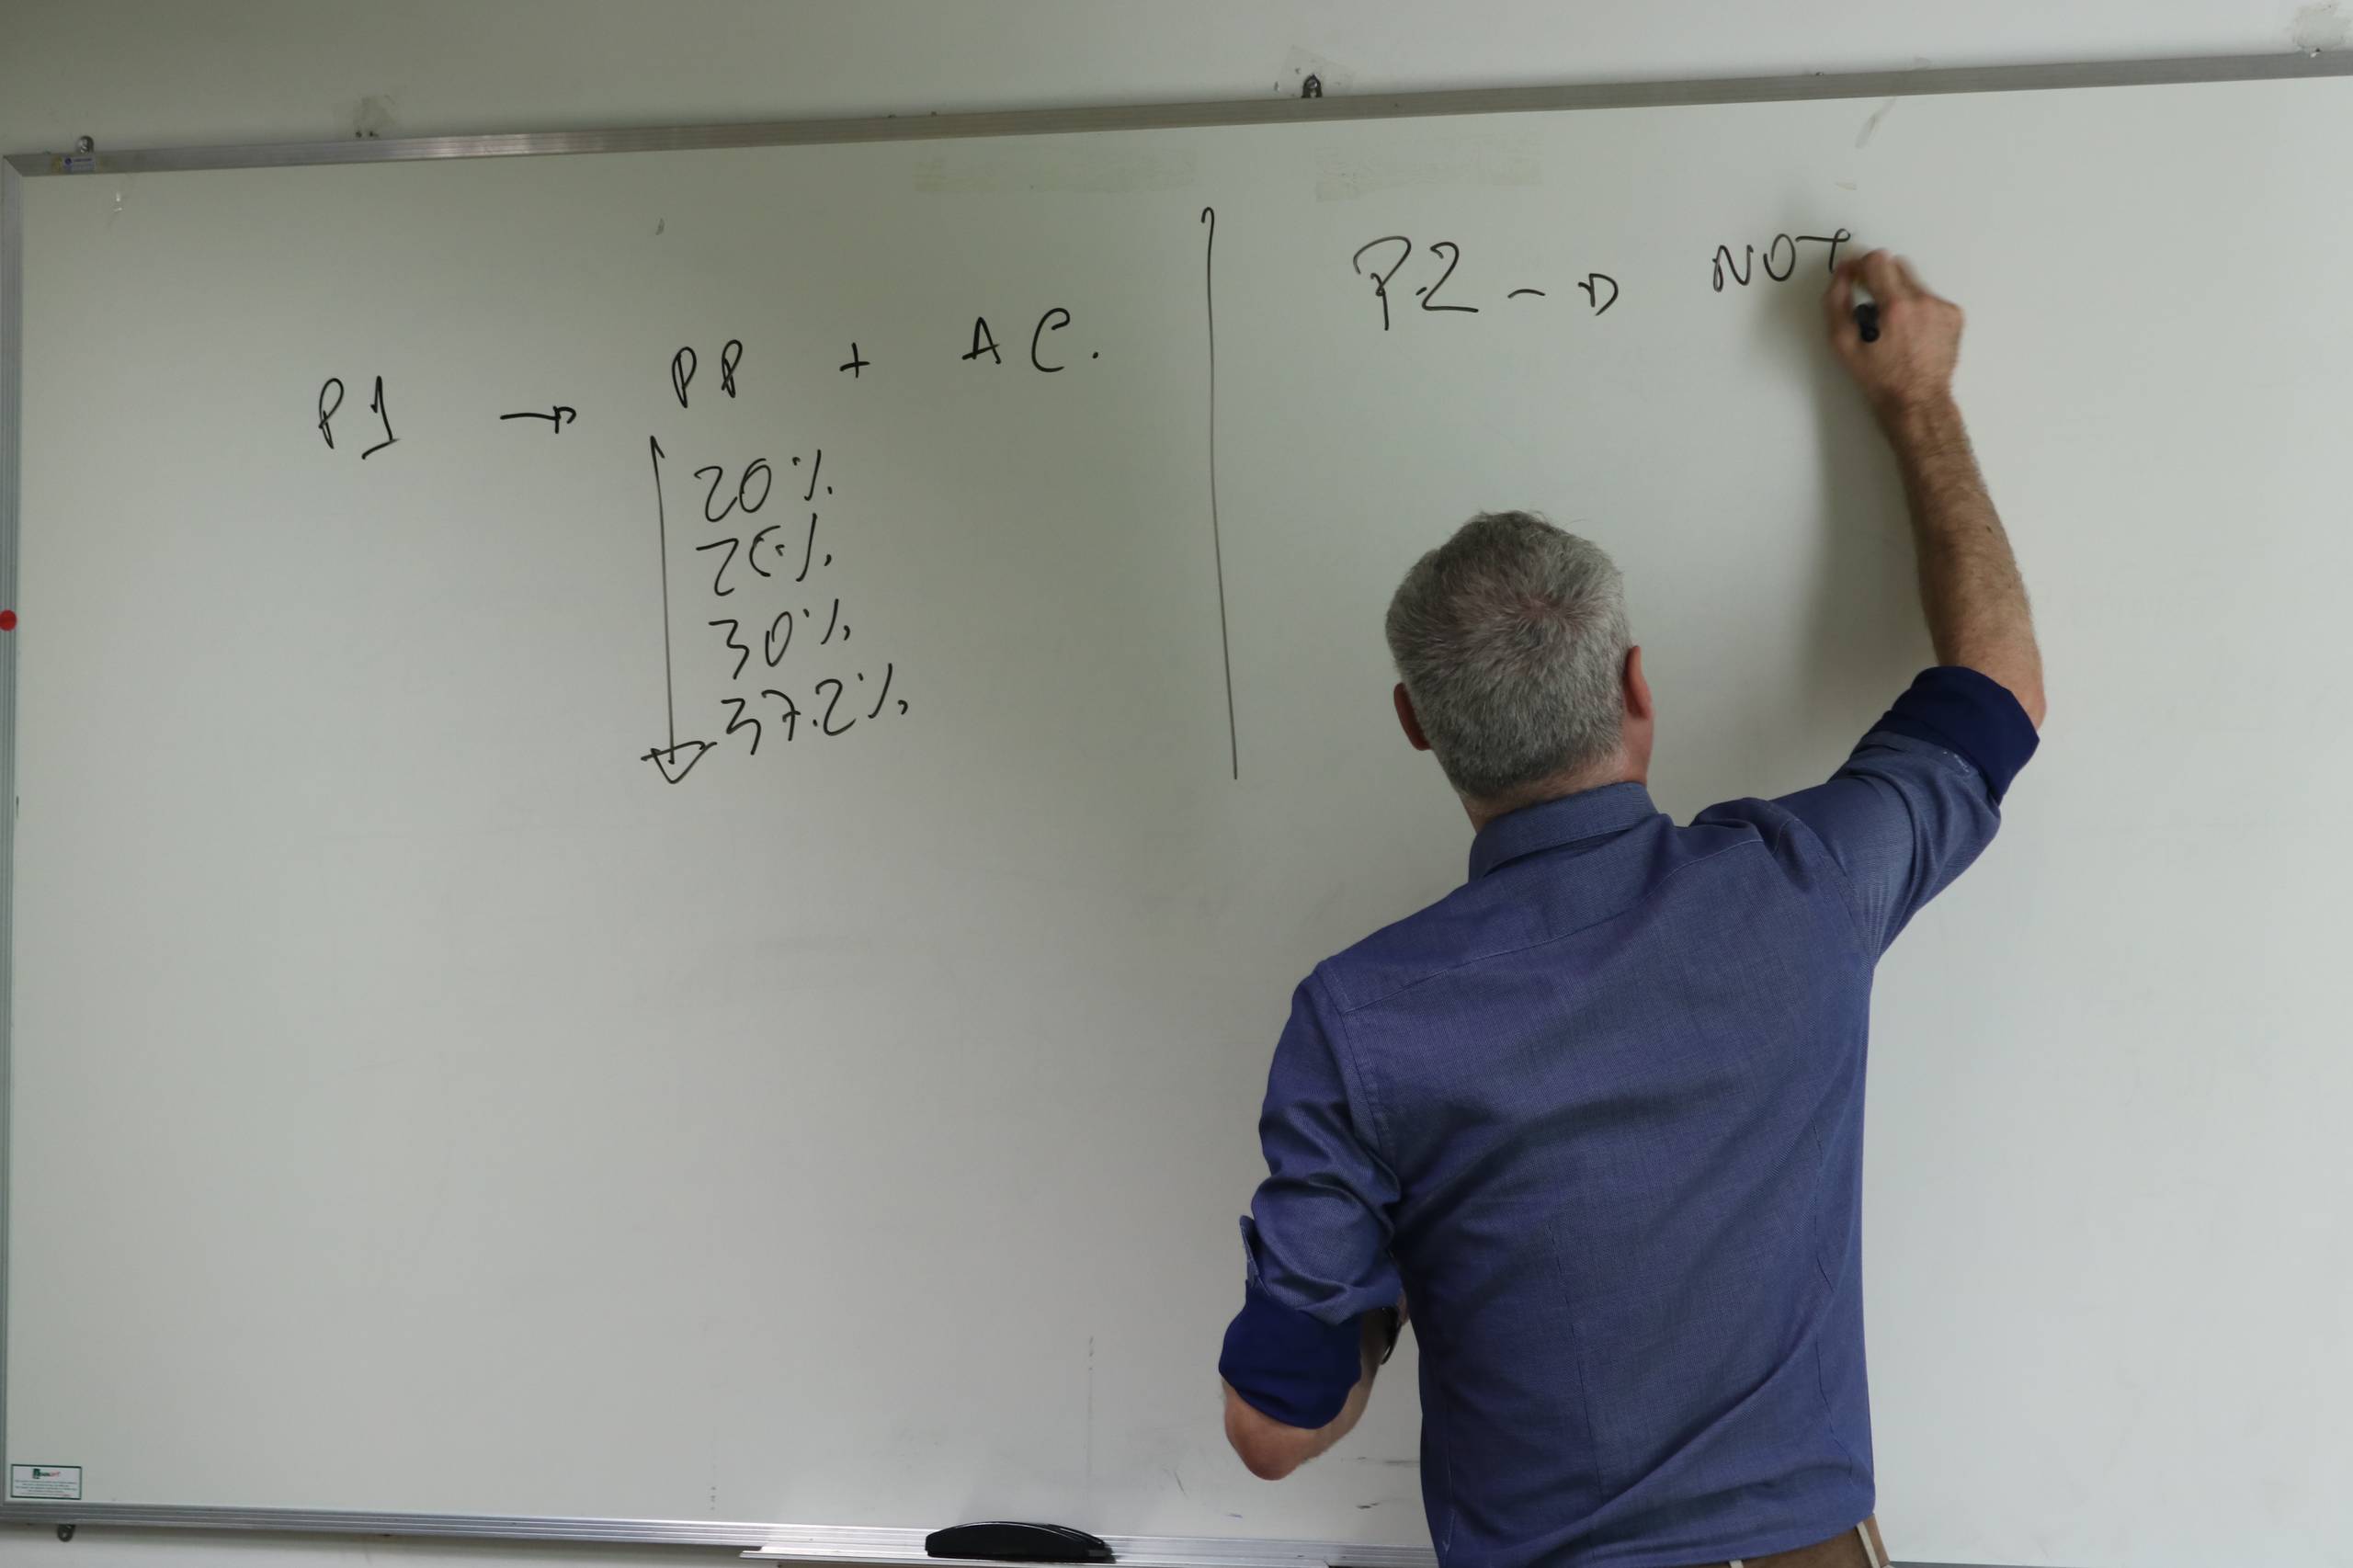 P1 → PP + AC.
20%
30%
37.2%
P2 -→ NOT